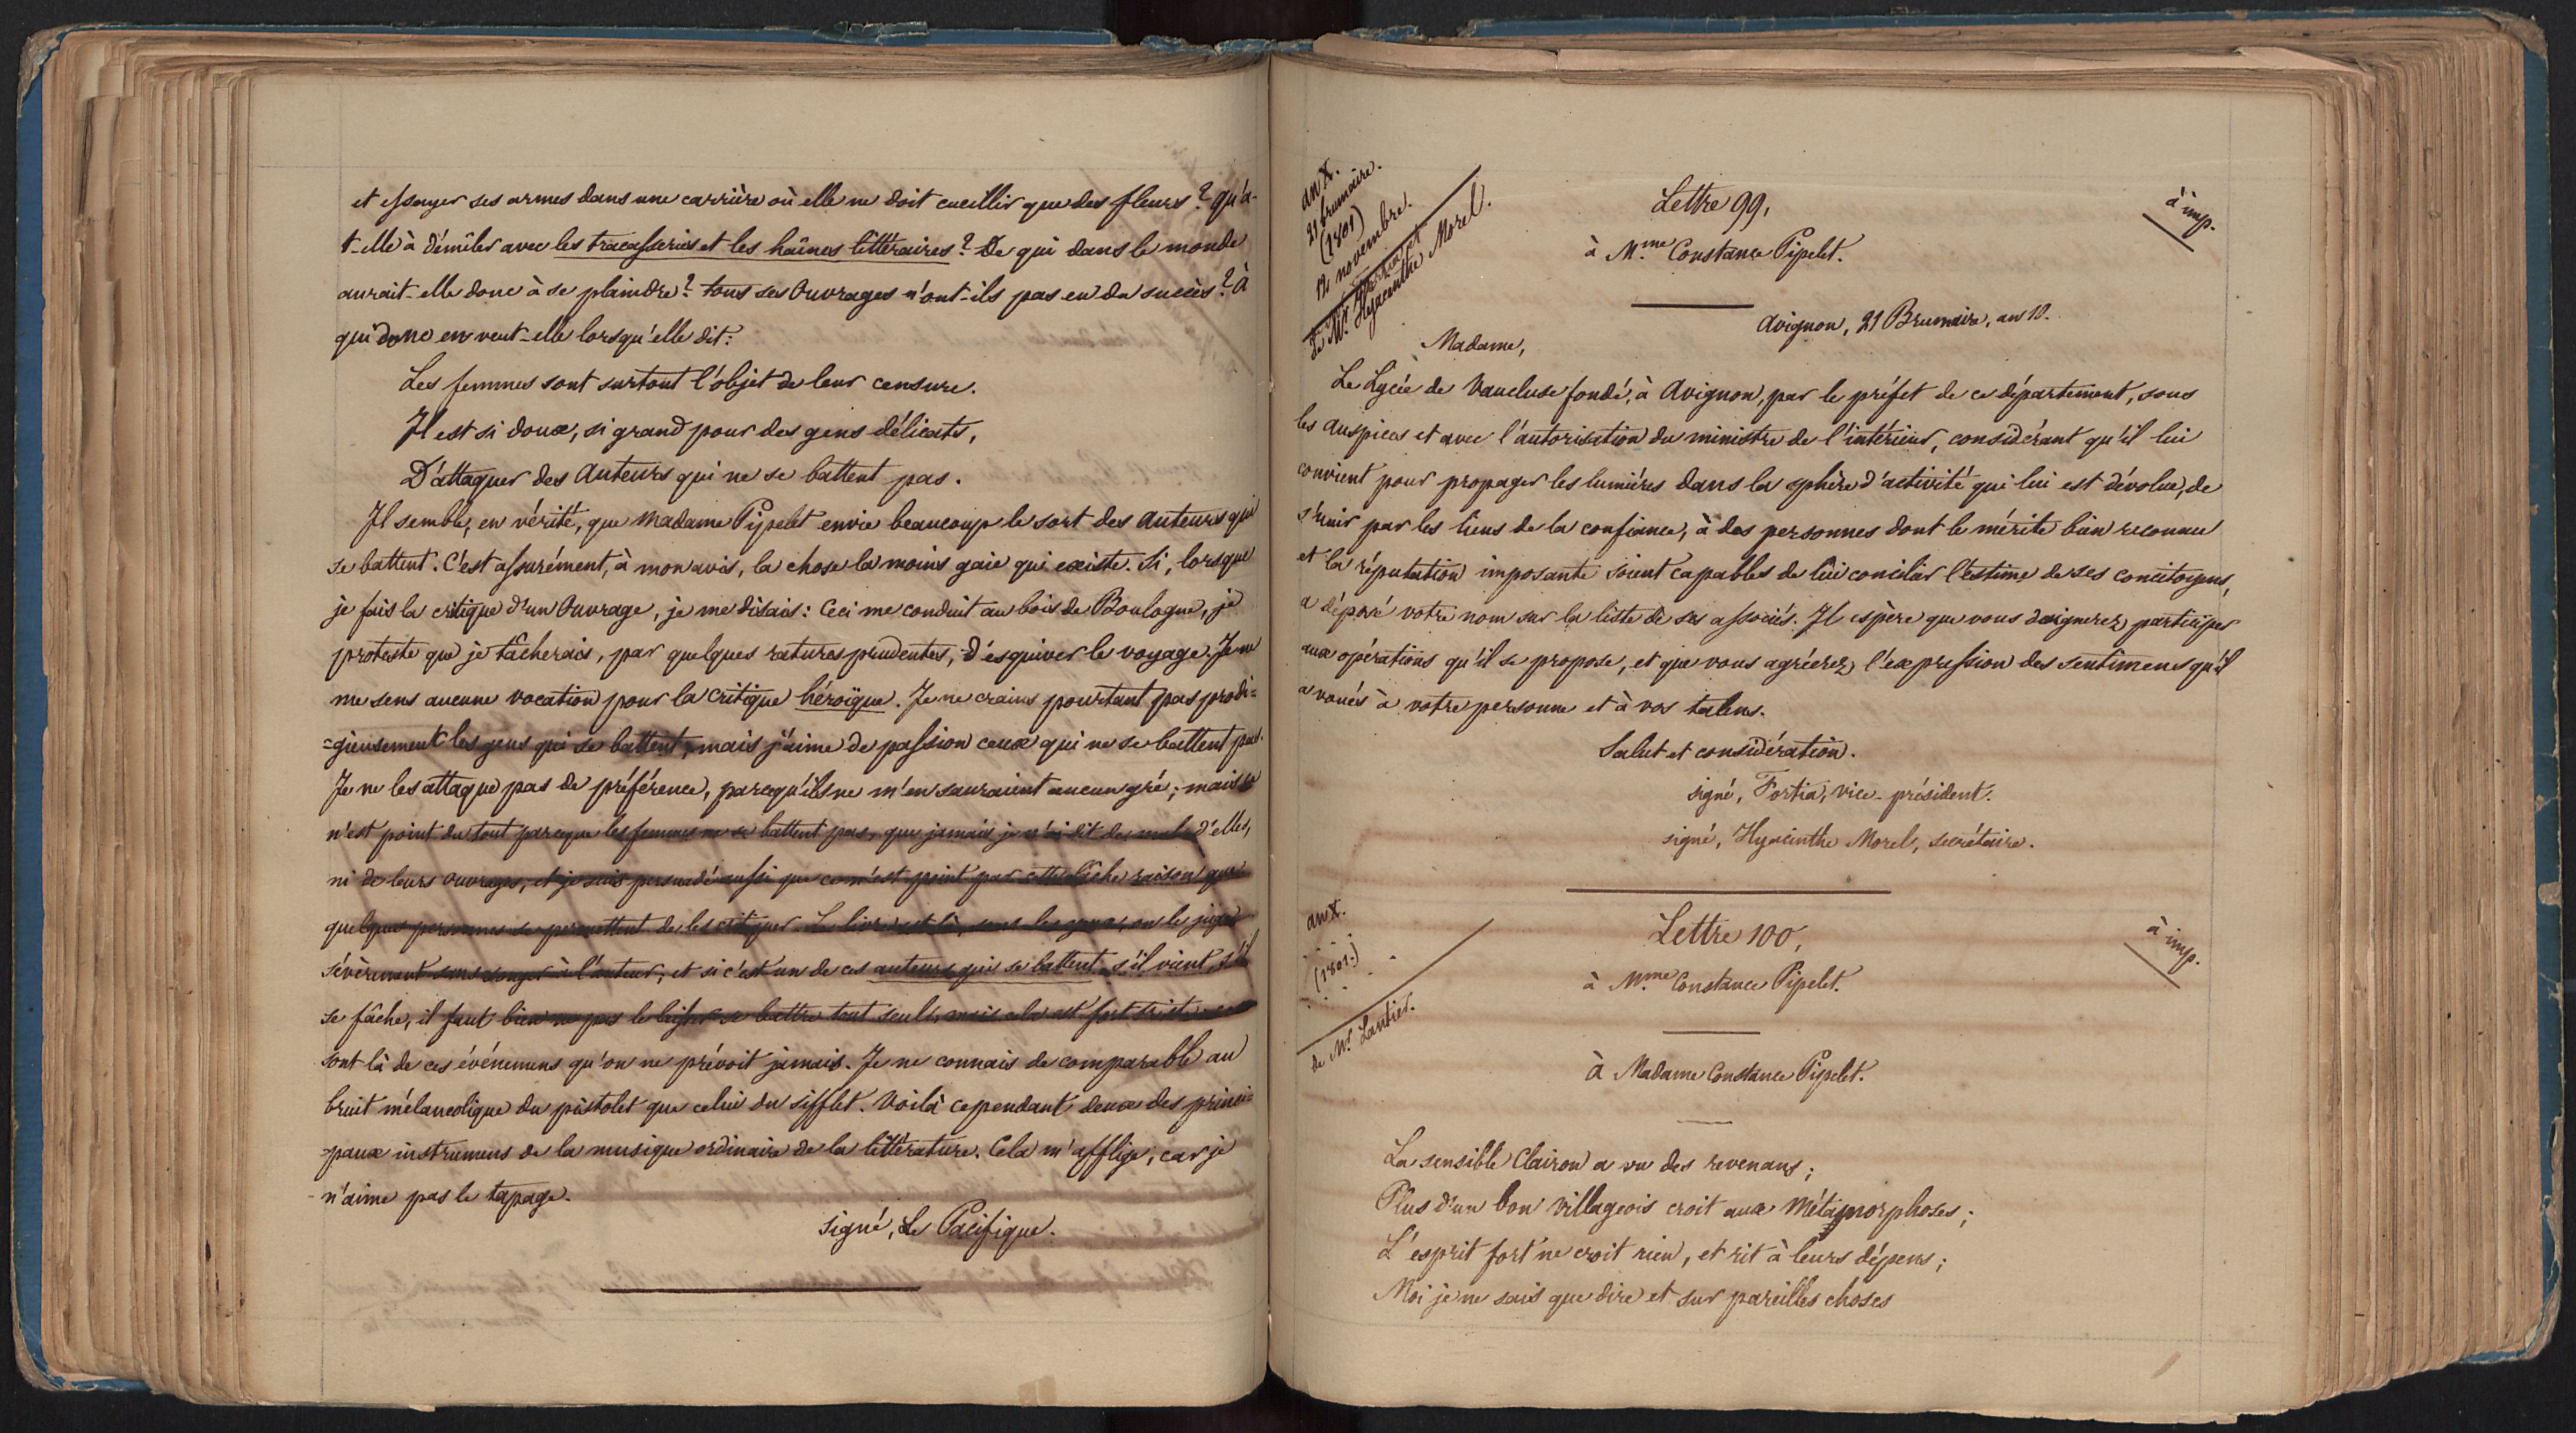 et essayer ses armes dans une carrière où elle ne doit cueillir que des fleurs? qu'a-
t-elle à démêler avec les tracasseries et les haînes littéraires? De qui dans le monde
aurait-elle donc à se plaindre? tous ses Ouvrages n'ont-ils pas eu du succès? À
qui donc en veut-elle lorsqu'elle dit:
Les femmes sont surtout l'objet de leur censure.
Il est si doux, si grand pour des gens délicats,
D'attaquer des Auteurs qui ne se battent pas.
Il semble, en vérité, que Madame Pipelet envie beaucoup le sort des Auteurs qui
se battent. C'est assurément, à mon avis, la chose la moins gaie qui existe. Si, lorsque
je fais la critique d'un Ouvrage, je me disais: Ceci me conduit au bois de Boulogne, je
proteste que je tâcherais, par quelques ratures prudentes, d'esquiver le voyage. Je ne
me sens aucune vocation pour la critique héroïque. Je ne crains pourtant pas prodi=
=gieusement les gens qui se battent, mais j'aime de passion ceux qui ne se battent pas.
Je ne les attaque pas de préférence, parcequ'ils ne m'en sauraient aucun gré; mais ce
n'est point du tout parceque les femmes ne se battent pas, que jamais je n'ai dit de mal d'elles,
ni de leurs ouvrages; et je suis persuadé aussi que ce n'est point par cette lâche raison que
quelques personnes se permettent de les critiquer. Le livre est là, sous les yeux, on le juge
sévèrement sans songer à l'auteur; et si c'est un de ces auteurs qui se battent, s'il vient, s'il
se fâche, il faut bien ne pas le laisser se battre tout seul, mais cela est fort triste
sont là de ces événemens qu'on ne prévoit jamais. Je ne connais de comparable au
bruit mélancolique du pistolet que celui du sifflet. Voilà cependant deux des princi=
-paux instrumens de la musique ordinaire de la littérature. Cela m'afflige, car je
n'aime pas le tapage.
signé, Le Pacifique.
an X.
21 brumaire.
(1801)
12 novembre.
de Mr. Hyacinthe Morel.
Lettre 99,
à imp.
à Mme Constance Pipelet.
Avignon, 21 Brumaire, an 10.
Madame,
Le Lycée de Vaucluse fondé, à Avignon, par le préfet de ce département, sous
les Auspices et avec l'autorisation du ministre de l'intérieur, considérant qu'il lui
convient pour propager les lumières dans la sphère d'activité qui lui est dévolue, de
s'unir par les liens de la confiance, à des personnes dont le mérite bien reconnu
et la réputation imposante soient capables de lui concilier l'estime de ses concitoyens,
a déposé votre nom sur la liste de ses associés. Il espère que vous daignerez participer
aux opérations qu'il se propose, et que vous agréerez l'expression des sentimens qu'il
a voués à votre personne et à vos talens.
Salut et considération.
signé, Fortia, vice-président.
signé, Hyacinthe Morel, secrétaire.
an X.
(1801.)
de Mr. Lantier.
Lettre 100,
à imp.
à Mme Constance Pipelet.
À Madame Constance Pipelet.
La sensible Clairon a vu des revenans;
Plus d'un bon villageois croit aux Métamorphoses;
L'esprit fort ne croit rien, et rit à leurs dépens;
Moi je ne sais que dire et sur pareilles choses